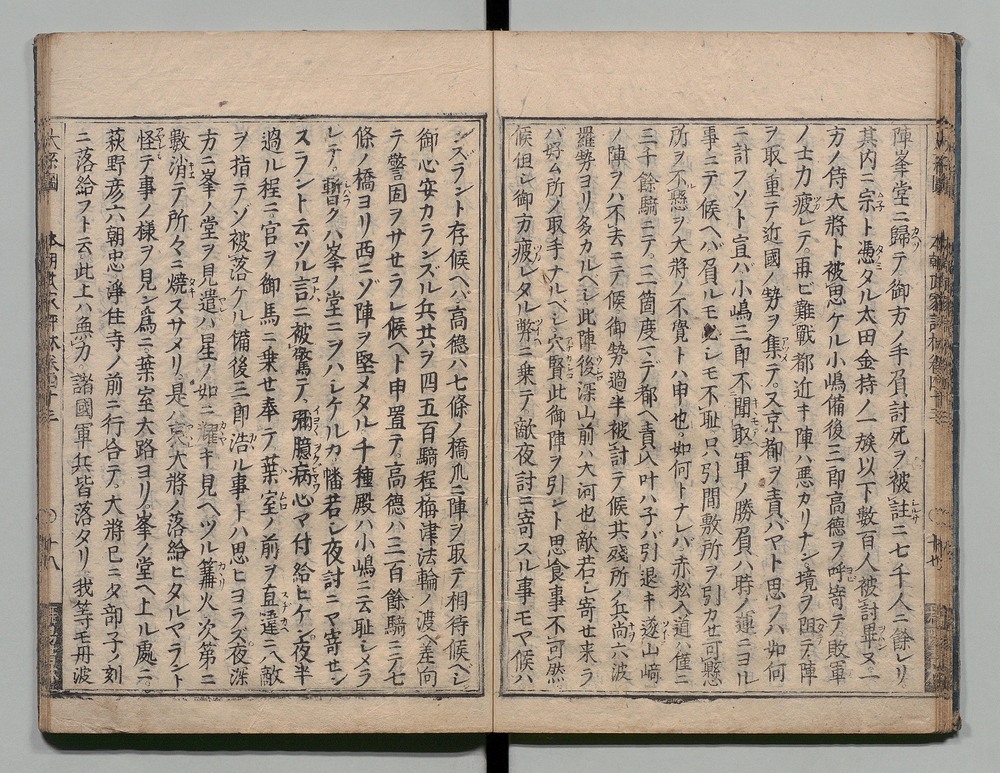 陣峯堂ニ歸テ御方ノ手負討死ヲ被註ニ七千人ニ餘レリ
其内ニ宗ト憑タル太田金持ノ一族以下數百人被討畢ヌ一
方ノ侍大將ト被思ケル小嶋備後三郎高德ヲ呼寄テ敗軍
ノ士力疲レテ再ビ難戰都近キ陣ハ悪カリナン境ヲ阻テ陣
ヲ取重テ近國ノ勢ヲ集テ又京都ヲ責バヤト思フハ如何
ニ計フソト宣バ小嶋三郎不聞敢軍ノ勝負ハ時ノ運ニヨル
事ニテ候ヘバ負ルモ必シモ不耻只引間敷所ヲ引カセ可懸
所ヲ不懸ヲ大將ノ不覺トハ申也如何トナレバ赤松入道ハ僅ニ
三千餘騎ニテ三箇度マデ都ヘ責入叶ハ子バ引退キ遂山﨑
ノ陣ヲハ不去ニテ候御勢過半被討テ候共殘所ノ兵尚六波
羅勢ヨリ多カルベシ此陣後深山前ハ大河也敵若シ寄せ来ラ
バ好ム所ノ取手ナルベシ穴賢此御陣ヲ引ント思食事不可然
候但シ御方疲レタル弊ニ乗テ敵夜討ニ寄スル事モヤ候ハ
ンズラント存候ヘバ高德ハ七條ノ橋爪ニ陣ヲ取テ相待候ヘシ
御心安カランズル兵共ヲ四五百騎程梅津法輪ノ渡ヘ差向
テ警固ヲサせラレ候ヘト申置テ高德ハ三百餘騎ニテ七
條ノ橋ヨリ西ニゾ陣ヲ堅メタル千種殿ハ小嶋ニ云耻シメラ
レテ暫クハ峯ノ堂ニヲハシケルカ幡若シ夜討ニヤ寄せン
スラント云ツル言ニ被驚テ彌臆病心ヤ付給ヒケン夜半
過ル程ニ宮ヲ御馬ニ乗せ奉テ葉室ノ前ヲ直違ニ八幡
ヲ指テゾ被落ケル備後三郎浩ル事トハ思ヒヨラズ夜深
方ニ峯ノ堂ヲ見遣バ星ノ如ニ耀キ見ヘツル篝火次第ニ
數消テ所々ニ燒スサメリ是ハ哀大將ノ落給ヒタルヤラント
怪テ事ノ様ヲ見ン爲ニ葉室大路ヨリ峯ノ堂ヘ上ル處ニ
萩野彦六朝忠淨住寺ノ前ニ行合テ大將巳ニ夕部子ノ刻
ニ落給フト云此上ハ無力諸國軍兵皆落タリ我等モ丹波